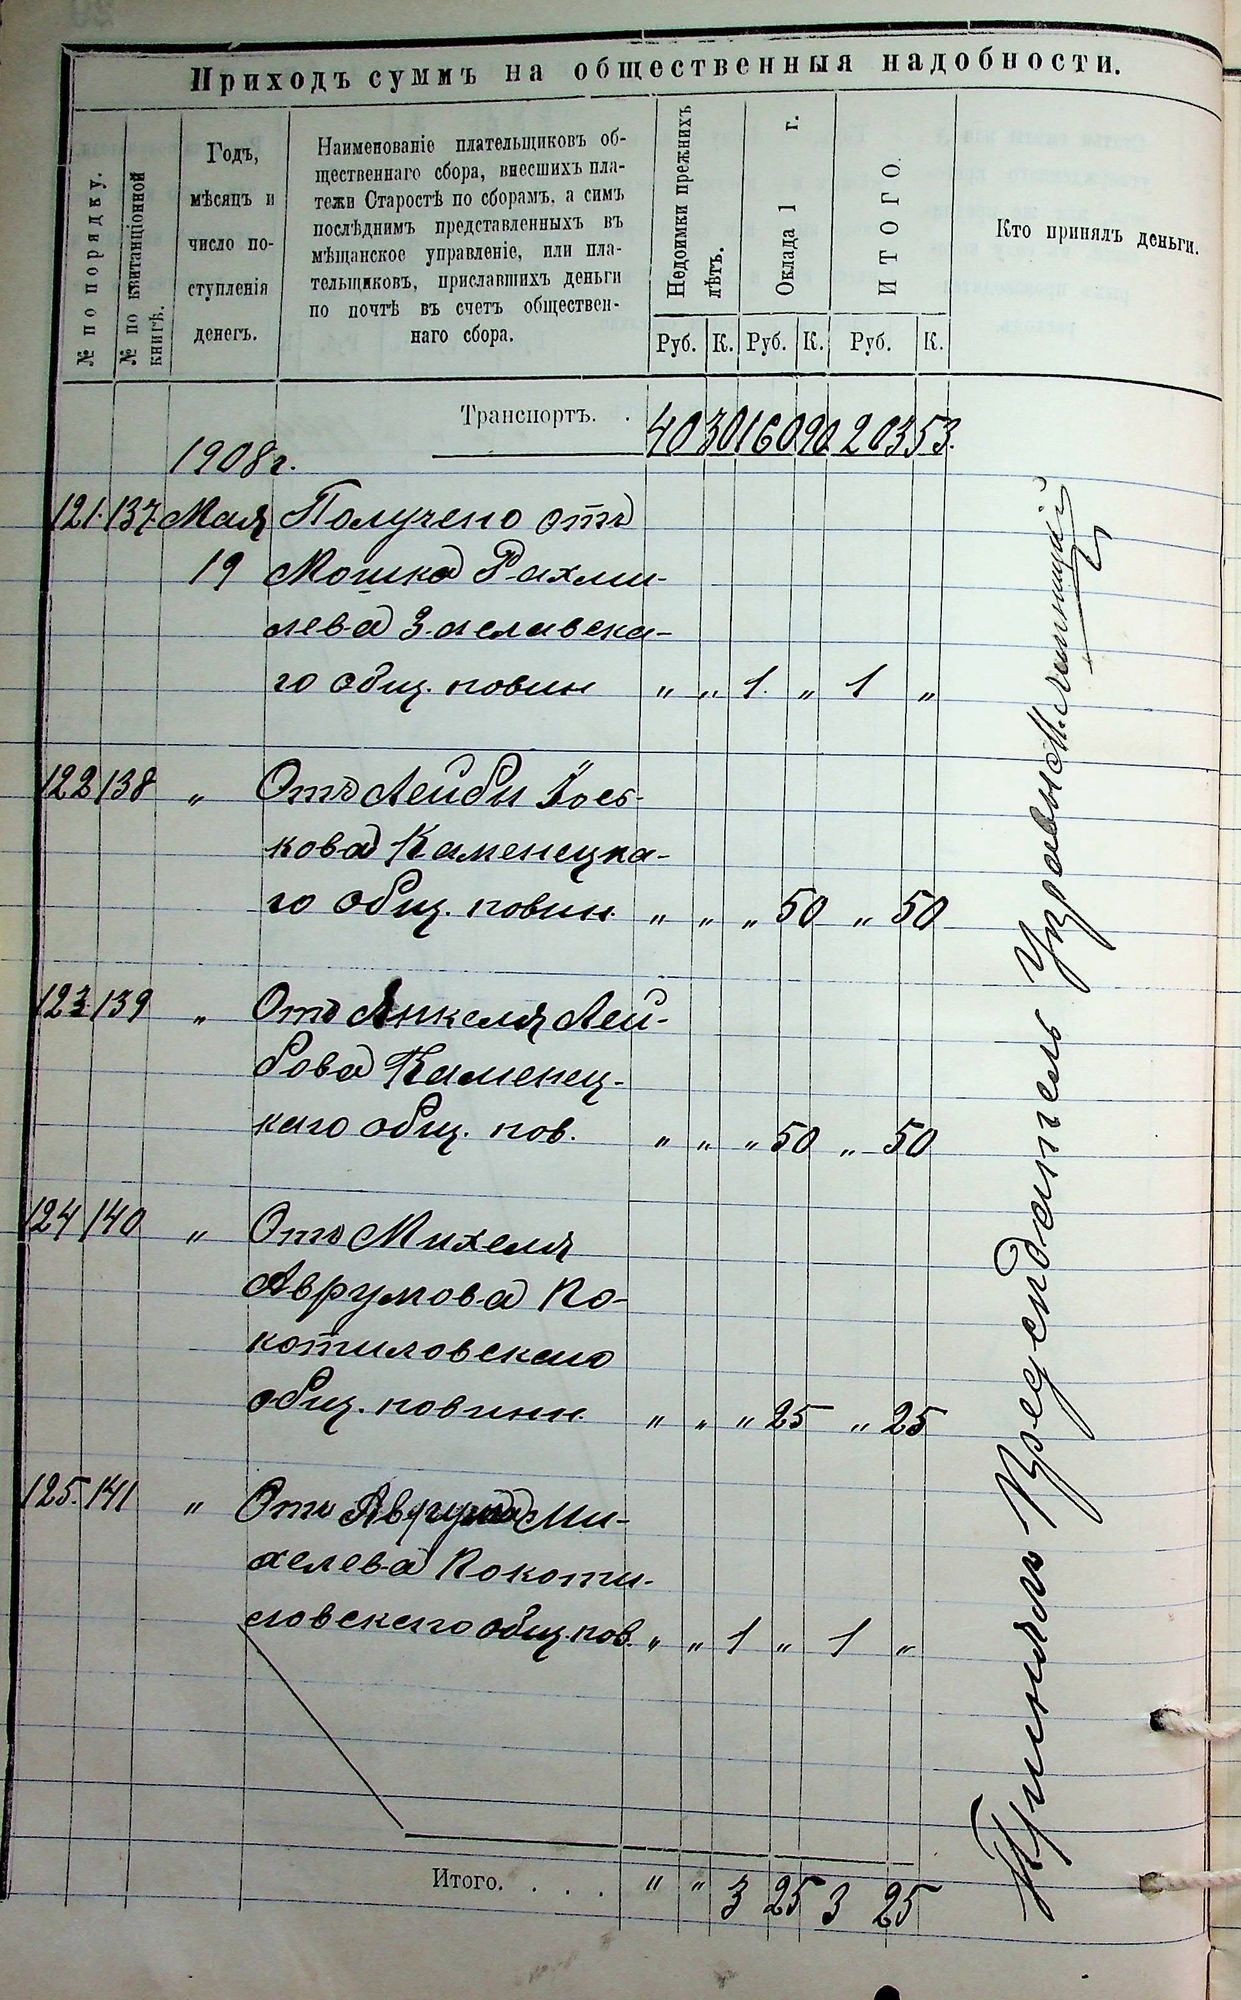 Приходъ суммъ на общественныя надобности.
№ по порядку.
№ по квитанціонной
книгѣ.
Годъ,
мѣсяцъ и
число по-
ступленія
денегъ.
Наименованіе плательщиковъ об-
щественнаго сбора, внесшихъ пла-
тежи Старостѣ по сборамъ, а симъ
послѣднимъ представленныхъ въ
мѣщанское управленіе, или пла-
тельщиковъ, приславшихъ деньги
по почтѣ въ счетъ обществен-
наго сбора.
Недоимки прежнихъ
лѣтъ.
Оклада 1 г.
ИТОГО.
Кто принялъ деньги.
Руб. К. Руб. К. Руб. К.
Транспортъ. . 40 30 160 90 203 53.
1908 г.
121. 137. Мая Получено отъ
19 Мошка Рахми-
лева Заславска-
го общ. повин „ „ 1. „ 1 „
122 138 „ Отъ Лейбы Іось-
кова Каменецка-
го общ. повин. „ „ „ 50 „ 50
123 139 „ Отъ Янкеля Лей-
бова Каменец-
каго общ. пов. „ „ „ 50 „ 50
124 140 „ Отъ Михеля
Аврумова Ко-
котиловскаго
общ. повинн. „ „ „ 25 „ 25
125. 141 „ Отъ Аврума Ми-
хелева Кокоти-
ловскаго общ. пов. „ „ 1 „ 1 „
Итого. . . . „ „ 3 25 3 25
Принялъ Предсѣдатель Управы